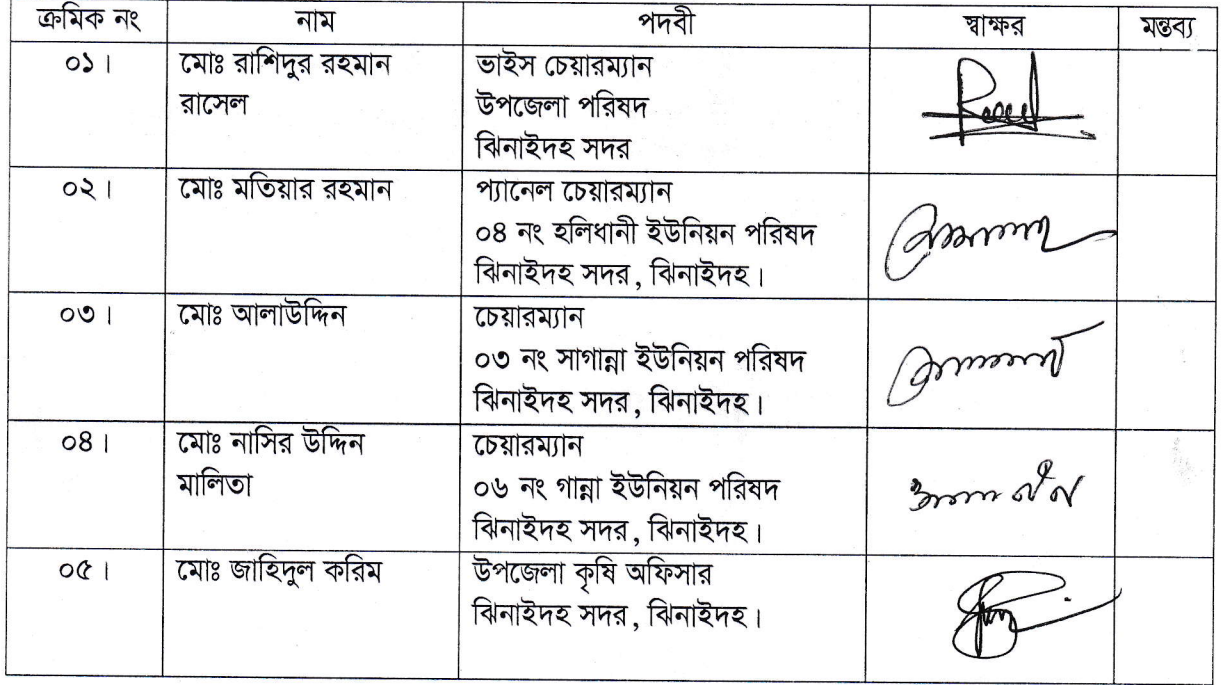 ক্রমিক নং নাম পদবী স্বাক্ষর মন্তব্য
০১। মোঃ রাশিদুর রহমান ভাইস চেয়ারম্যান
রাসেল উপজেলা পরিষদ
ঝিনাইদহ সদর
০২। মোঃ মতিয়ার রহমান প্যানেল চেয়ারম্যান
০৪ নং হলিধানী ইউনিয়ন পরিষদ
ঝিনাইদহ সদর, ঝিনাইদহ।
০৩। মোঃ আলাউদ্দিন চেয়ারম্যান
০৩ নং সাগান্না ইউনিয়ন পরিষদ
ঝিনাইদহ সদর, ঝিনাইদহ।
০৪। মোঃ নাসির উদ্দিন চেয়ারম্যান
মালিতা ০৬ নং গান্না ইউনিয়ন পরিষদ
ঝিনাইদহ সদর, ঝিনাইদহ।
০৫। মোঃ জাহিদুল করিম উপজেলা কৃষি অফিসার
ঝিনাইদহ সদর, ঝিনাইদহ।